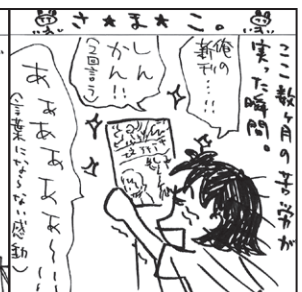 さ★ま★こ。
ここ数ヶ月の苦労が
実った瞬間。
俺の
新刊…!!
しん
かん!!
(2回言う)
あぁああぁぁ~~!!
(言葉にならない感動)